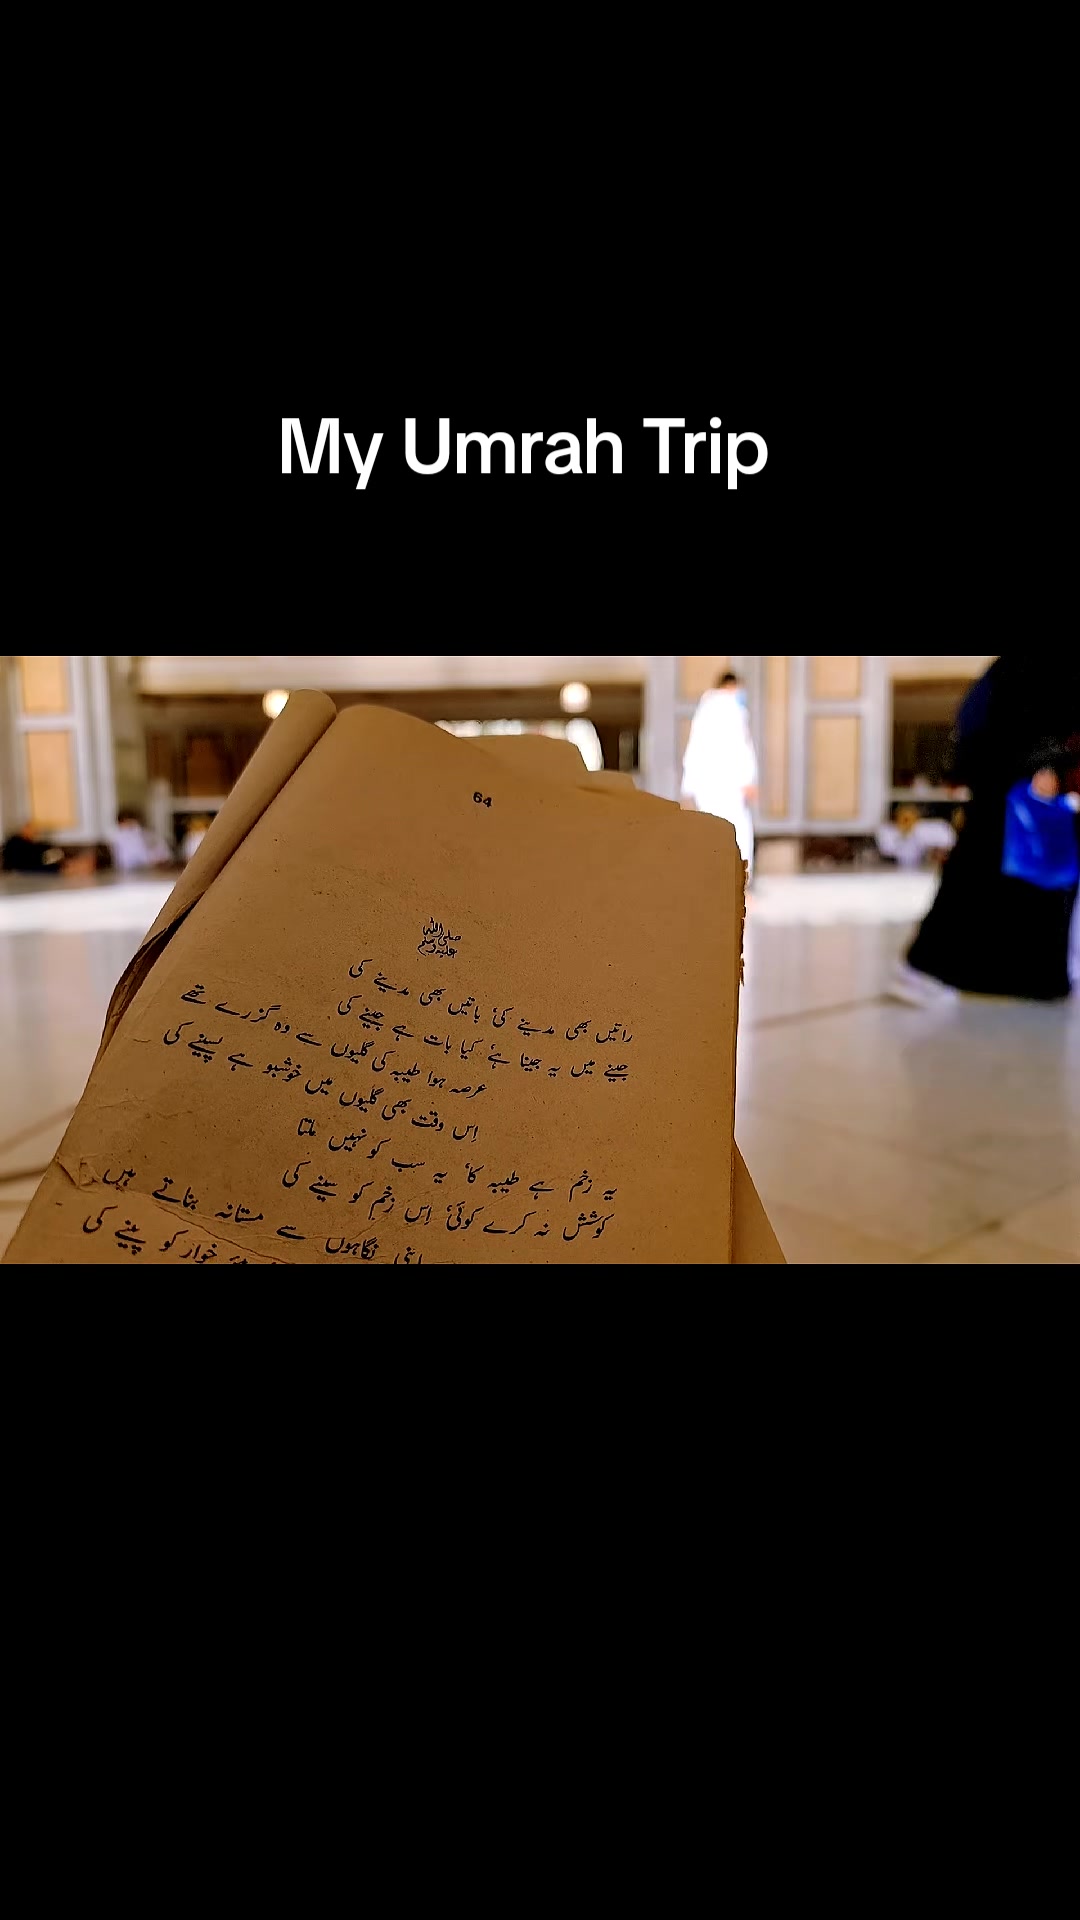 My Umrah Trip
64
صلی اللہ علیہ وسلم
راتیں بھی مدینے کی، باتیں بھی مدینے کی
جینے میں یہ جینا ہے، کیا بات ہے جینے کی
عرصہ ہوا طیبہ کی گلیوں سے وہ گزرے تھے
اِس وقت بھی گلیوں میں خوشبو ہے پسینے کی
یہ زخم ہے طیبہ کا، یہ سب کو نہیں ملتا
کوشش نہ کرے کوئی، اِس زخم کو سینے کی
اپنی نگاہوں سے مستانہ بناتے ہیں
خوار کو پینے کی